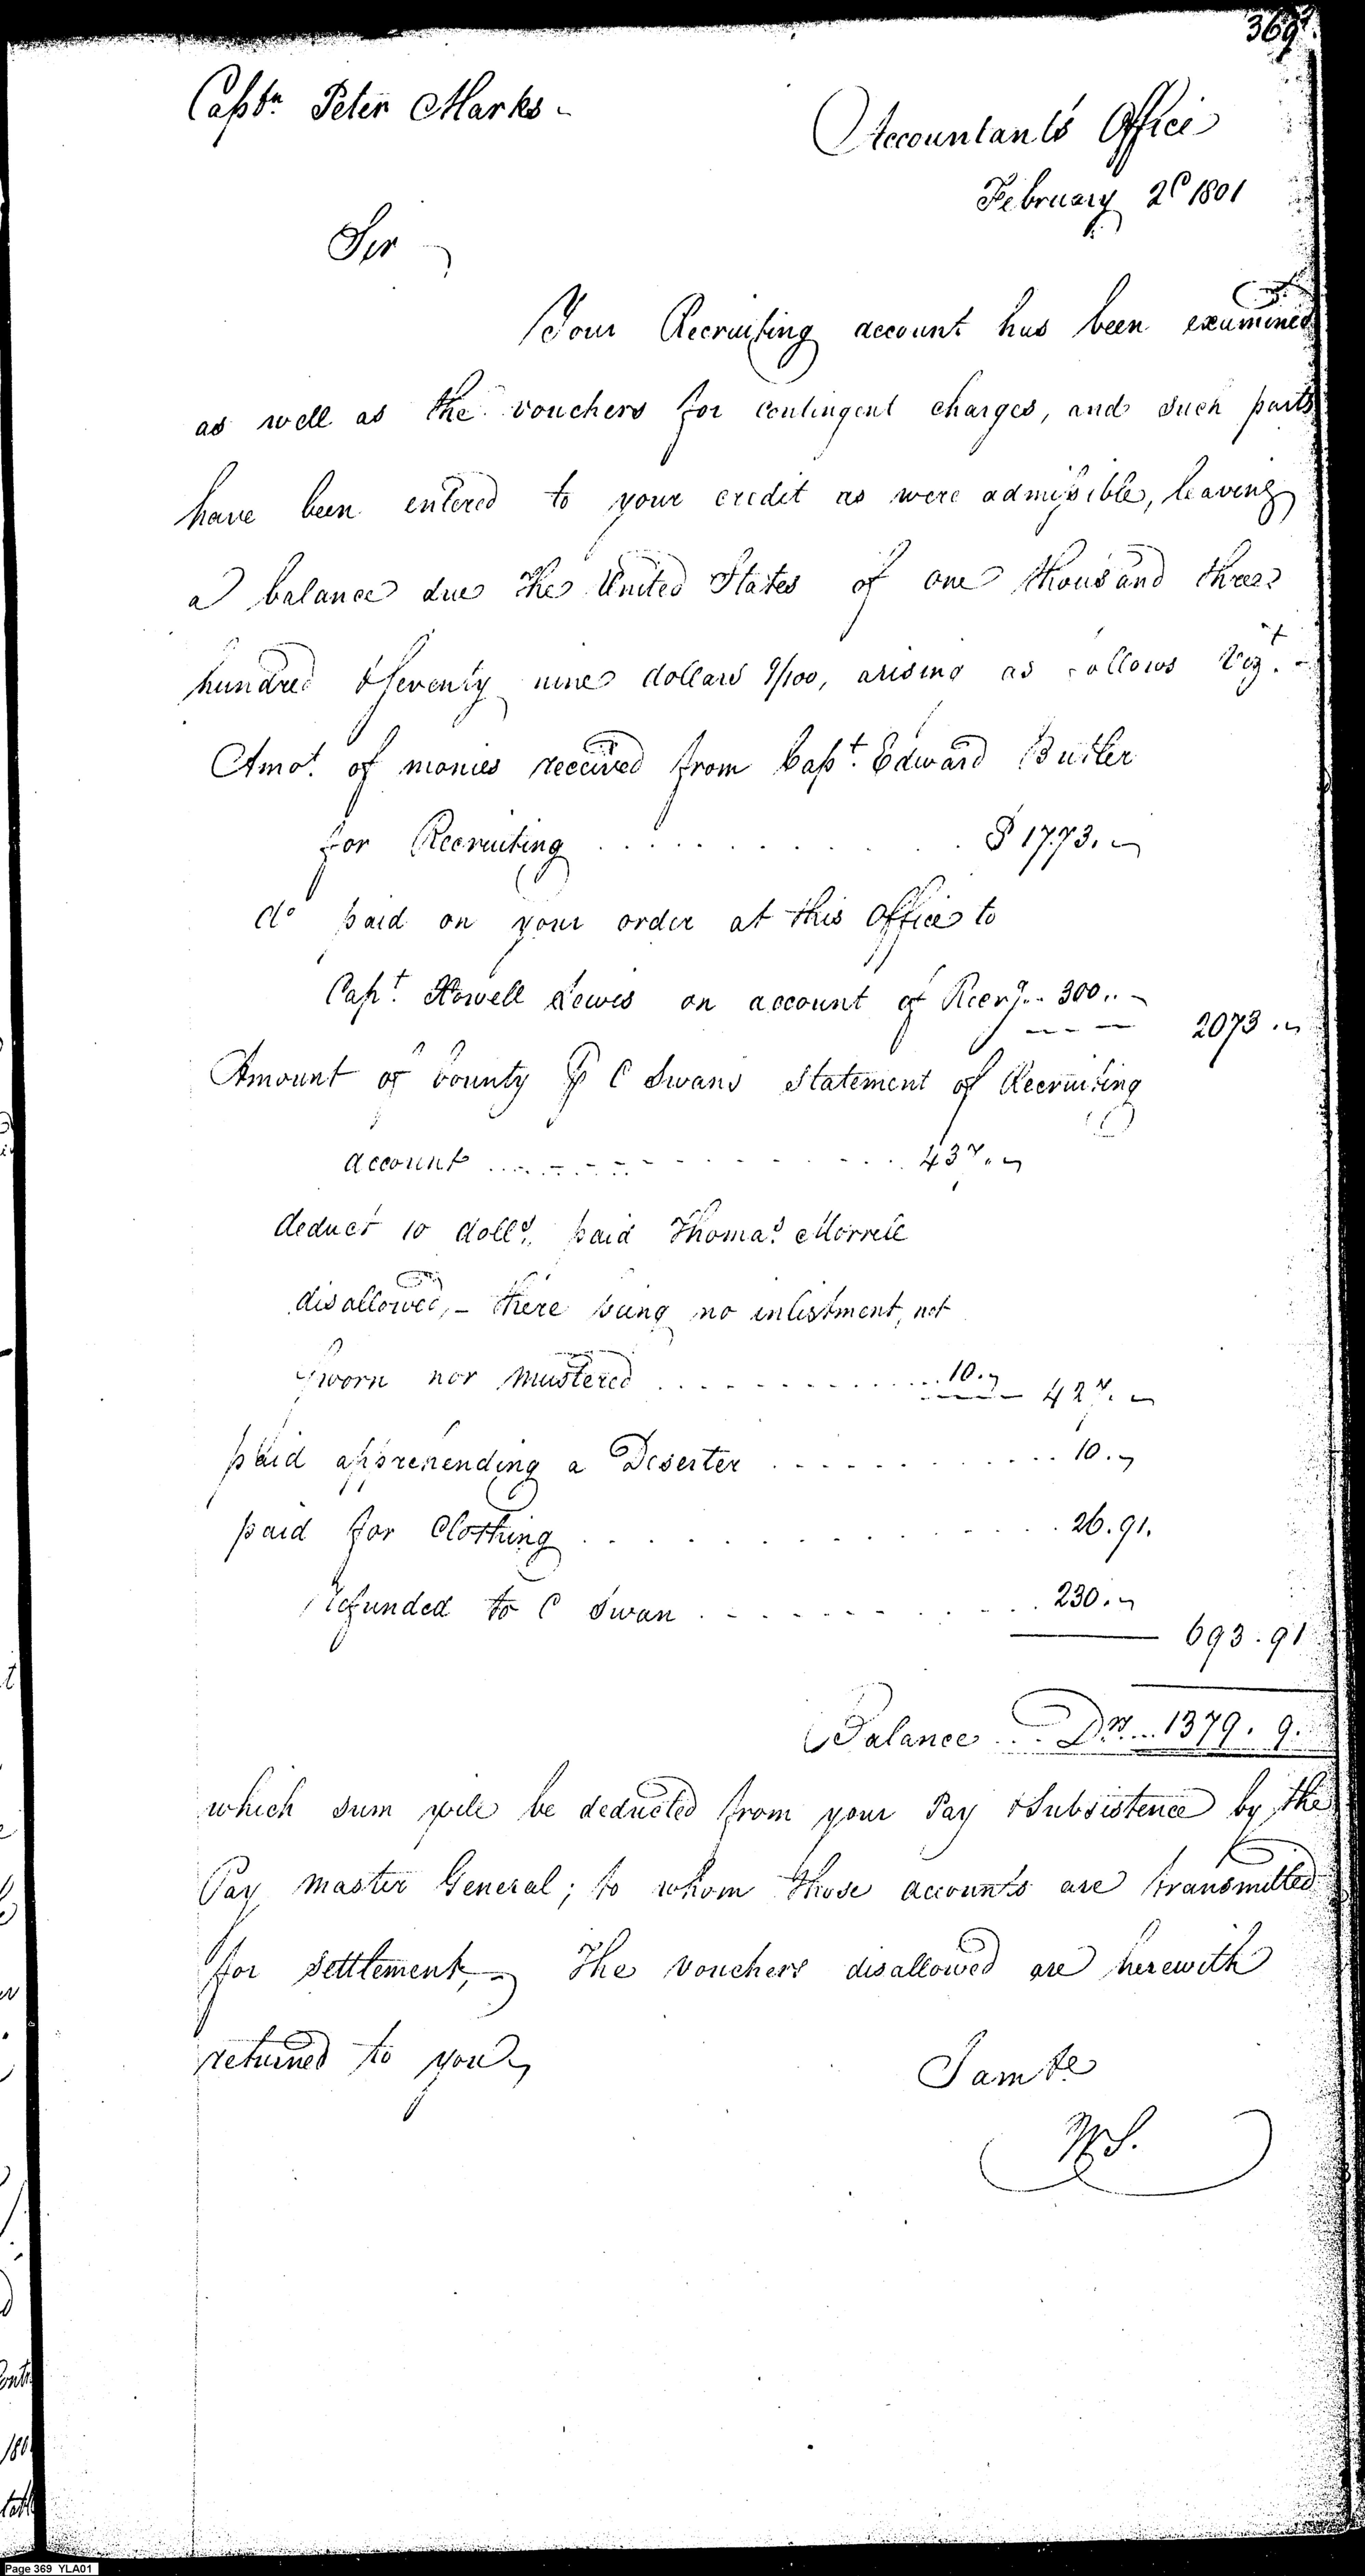 369
Captn. Peter Marks -
Accountants Office
February 2d 1801
Sir
Your Recruiting account has been examined
as well as the vouchers for contingent charges, and such parts
have been entered to your credit as were admissible, leaving
a balance due the United States of one thousand three
hundred & seventy nine dollars 9/100, arising as follows Vizt. -
Amot. of monies received from Capt. Edward Butler
for Recruiting . . . . . . . . . . . $ 1773. -
do paid on your order at this office to
Capt. Howell Lewis on account of Recrg.. 300.. -
2073. -
Amount of bounty ⅌ C Swans Statement of Recruiting
account . . . . . . . . . . . 437. -
deduct 10 dolls. paid Thomas. Morrell
disallowed, - there being no inlistment, not
Sworn nor mustered . . . . . . . . . 10. -
427. -
paid apprehending a Deserter . . . . . . . . . 10. -
paid for Clothing . . . . . . . . . . . 26.91.
refunded to C Swan . . . . . . . . . . 230. -
693.91
Balance . . . Drs... 1379. 9.
which sum will be deducted from your Pay & Subsistence by the
Pay master General; to whom those accounts are transmitted
for settlement, - The vouchers disallowed are herewith
returned to you
I am &c
WS.
Page 369 YLA01